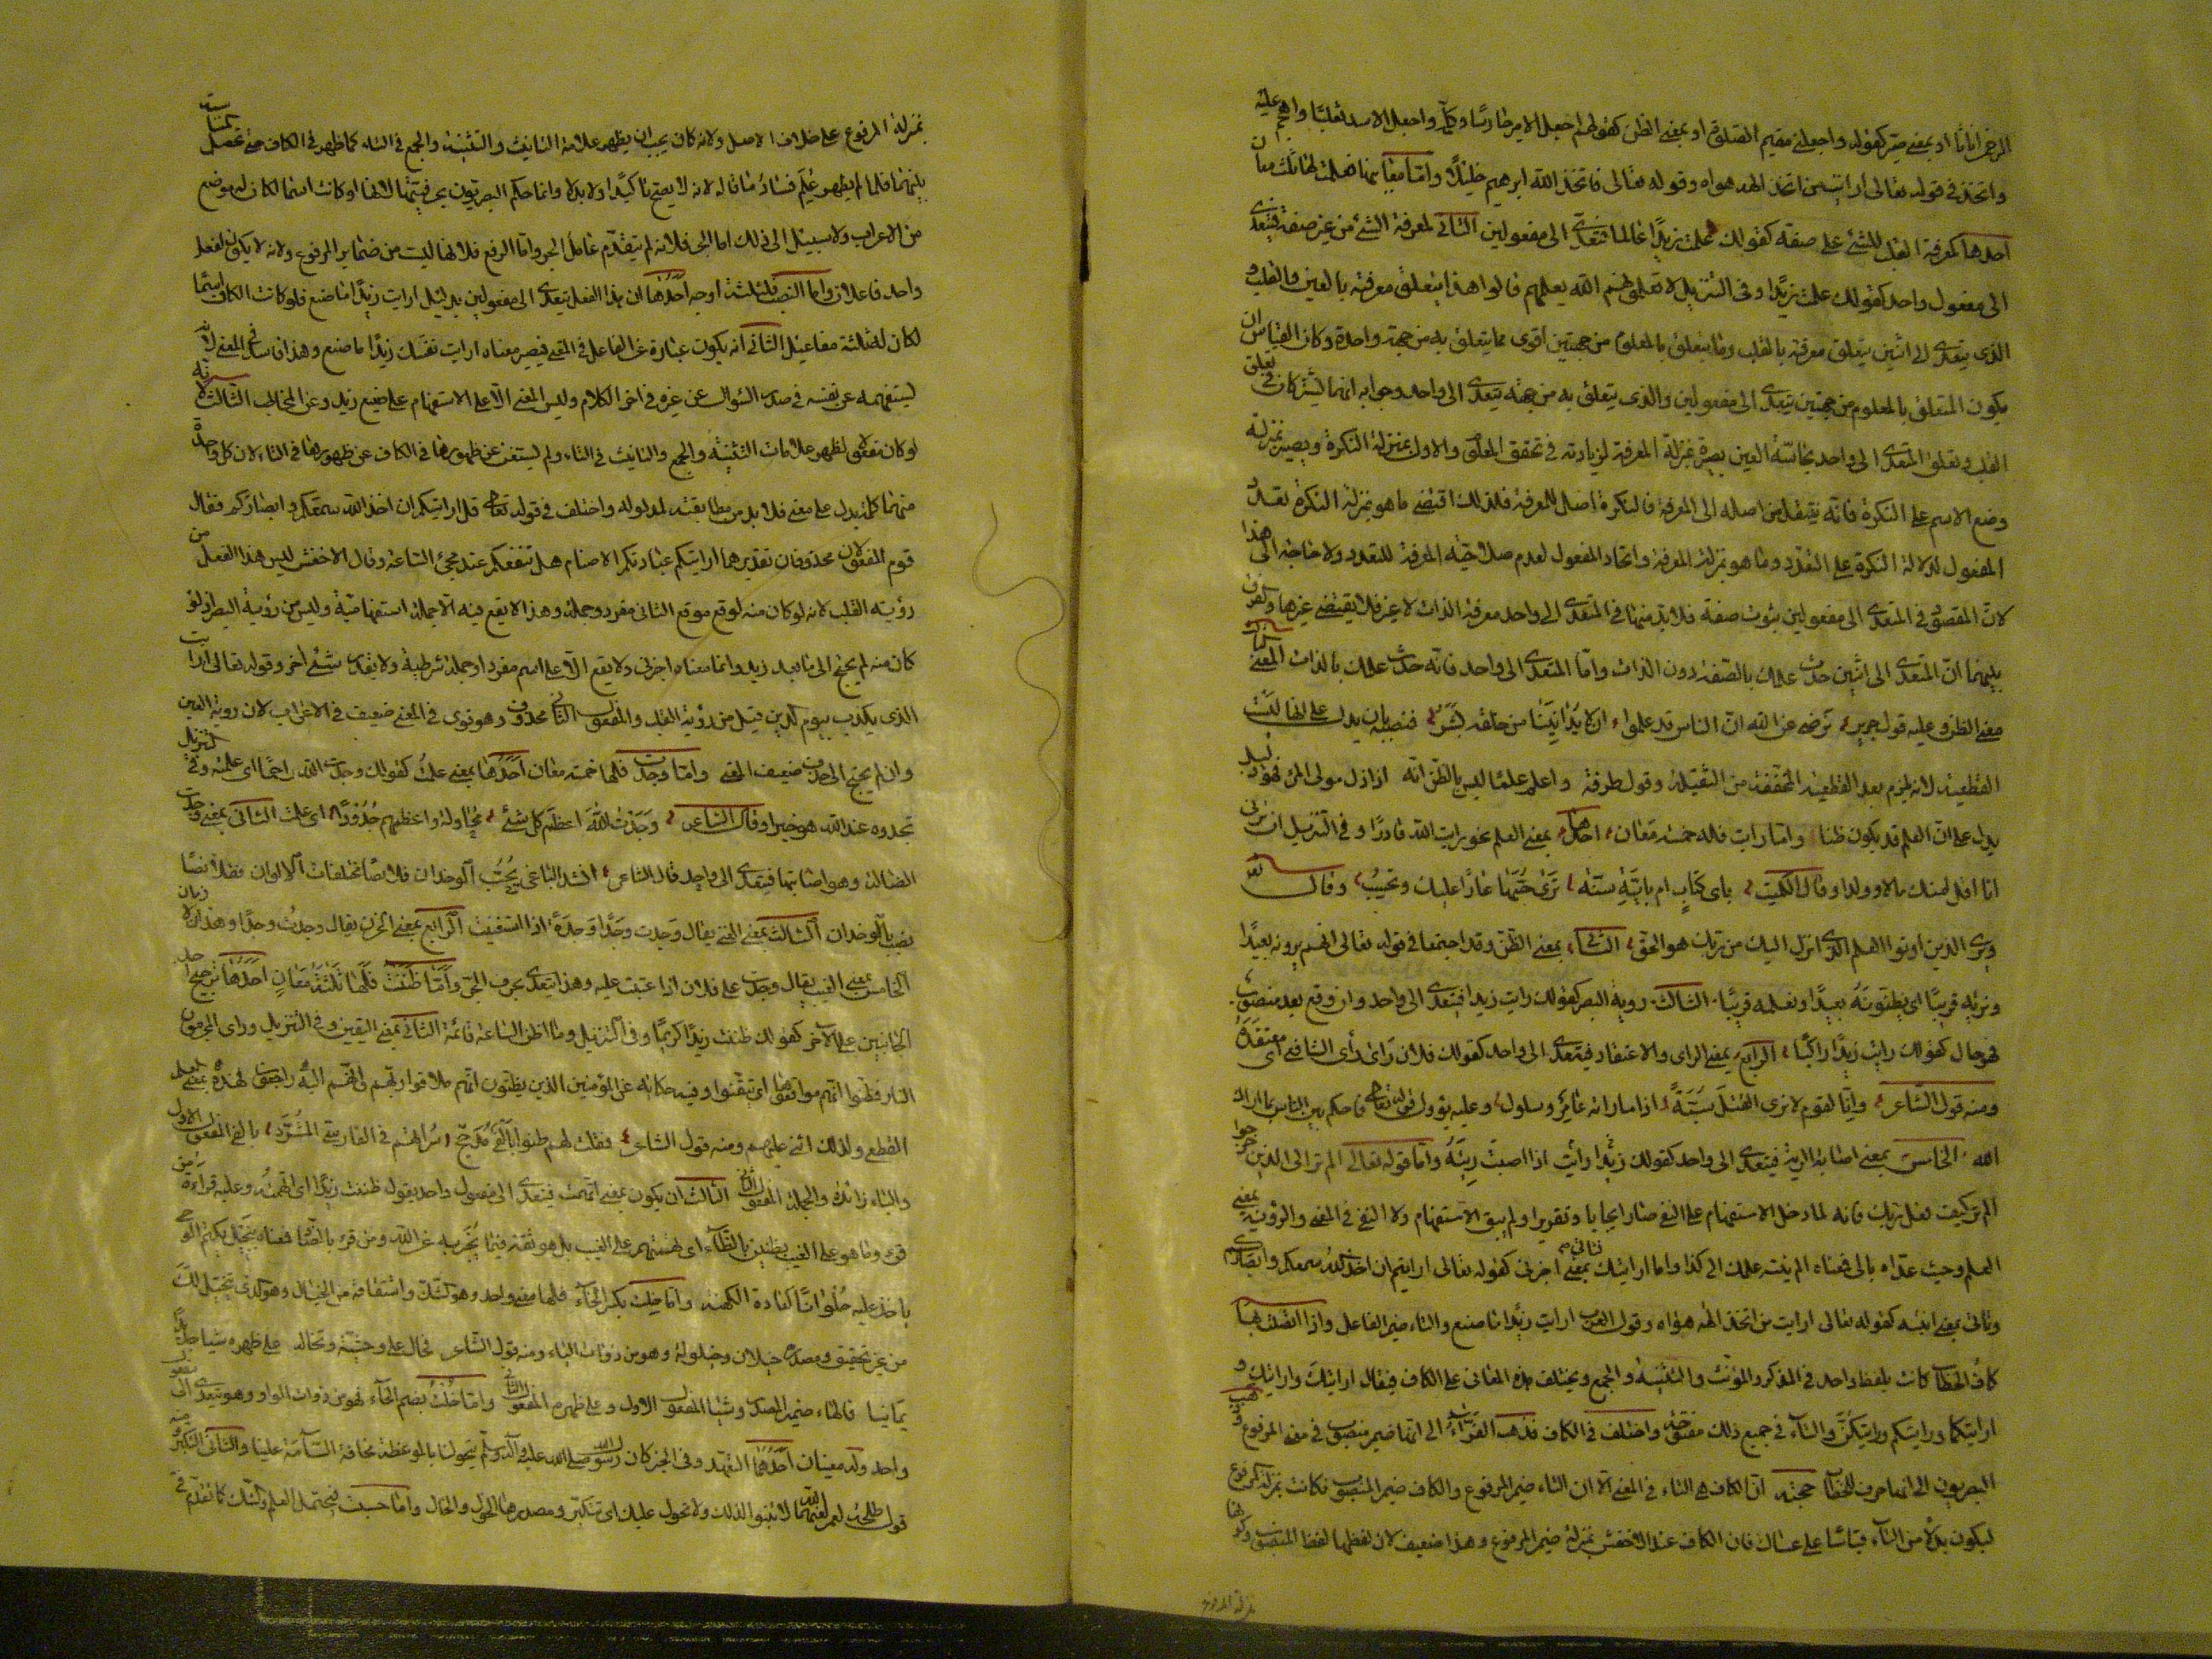 الرحمن اناثا او بمعنى صير كقوله واجعلنى مقيم الصلوة او بمعنى الظن كقولهم اجعل الامير واجعل الاسد ثعلبا واهجم عليه
واتخذ فى قوله تعالى ارايت من اتخذ الهه هواه وقوله تعالى فاتخذ الله ابرهيم خليلا واما معانيها فعلمت لها ثلث معان
احدها لمعرفة القلب للشئ على صفة كقولك علمت زيدا عالما فتتعدى الى مفعولين الثانى لمعرفة الشئ من غير صفة فتتعدى
الى مفعول واحد كقولك علمت زيدا وفى التنزيل لا تعلمونهم الله يعلمهم قالوا هذا يتعلق معرفته بالعين والقلب و
الذى يتعدى الى اثنين يتعلق معرفته بالقلب وما يتعلق بالمعلوم من جهتين اقوى مما يتعلق به من جهة واحدة وكان القياس ان
يكون المتعلق بالمعلوم من جهتين يتعدى الى مفعولين والذى يتعلق به من جهة يتعدى الى واحد وجوابه انهما يشتركان فى تعلق
القلب وتعلق المتعدى الى واحد بحاسة العين يصيره بمنزلة المعرفة لزيادته فى تحقق المعلوم والاول بمنزلة النكرة ويصير بمنزلة
وضع الاسم على النكرة فانه ينتقل من اصله الى المعرفة فالنكرة اصل للمعرفة فلذلك اقتضى ما هو بمنزلة النكرة تعدد
المفعول لدلالة النكرة على التعدد وما هو بمنزلة المعرفة واتحاد المفعول لعدم صلاحية المعرفة للتعدد ولا حاجة الى هذا
لان المقصود فى المتعدى الى مفعولين ثبوت صفة فلا بد منهما وفى المتعدى الى واحد معرفة الذات لا غير فلا يقتضى غيرها والفرق
بينهما ان المتعدى الى اثنين حدث علمك بالصفة دون الذات واما المتعدى الى واحد فانه حدث علمك بالذات المعنى
معنى الظن وعليه قول جرير نرضى عن الله ان الناس قد علموا ان لا يدانينا من خلقه بشر فنصبه بان يدل على انها ليست
القطعية لانه يلزم بعد القطعية المخففة من الثقيلة وقول طرفة واعلم علما ليس بالظن انه اذا ذل مولى المرء فهو ذليل
يدل على ان العلم قد يكون ظنا واما رايت فله خمسة معان احدها بمعنى العلم نحو رايت الله قادرا وفى التنزيل ان ترن
انا اقل منك مالا وولدا وقال الكميت باى كتاب ام باية سنة ترى حبهم عارا عليك وتحسب وقال الله
ويرى الذين اوتوا العلم الذى انزل اليك من ربك هو الحق الثانى بمعنى الظن وقد اجتمعا فى قوله تعالى انهم يرونه بعيدا
ونريه قريبا اى يظنونه بعيدا ونعلمه قريبا الثالث رؤية البصر كقولك رايت زيدا فيتعدى الى واحد وان وقع بعد منصوب
فهو حال كقولك رايت زيدا راكبا الرابع بمعنى الراى والاعتقاد فيتعدى الى واحد كقولك فلان راى راى الشافعى اى معتقده
ومنه قول الشاعر وانا لقوم لا نرى القتل سبة اذا ما راته عامر وسلول وعليه يؤول قوله تعالى فاحكم بين الناس بما اراك
الله الخامس بمعنى اصابة الرية فيتعدى الى واحد كقولك زيدا رايت اذا اصبت ريته واما قوله تعالى الم تر الى الذين خرجوا
الم تر كيف فعل ربك فانه لما دخل الاستفهام على النفى صار ايجابا وتقريرا ولم يبق الاستفهام ولا النفى فى المعنى والرؤية بمعنى
العلم وحيث عداه بالى فمعناه الم ينته علمك الى كذا واما ارايتك بمعنى اخبرنى كقوله تعالى ارايتم ان اخذ الله سمعكم وابصاركم
وتاتى بمعنى انتبه كقوله تعالى ارايت من اتخذ الهه هواه وقول العرب ارايت زيدا ما صنع والتاء ضمير الفاعل واذا اتصلت بها
كاف الخطاب كانت بلفظ واحد فى المذكر والمؤنث والتثنية والجمع ويختلف هذه المعانى على الكاف فيقال ارايتك وارايتك و
ارايتكما ورايتكم ورايتكن والتاء فى جميع ذلك مفتوحة واختلف فى الكاف فذهب الفراء الى انها ضمير منصوب فى معنى المرفوع وذهب
البصريون الى انها حرف للخطاب حجته ان الكاف هى التاء فى المعنى الا ان التاء ضمير المرفوع والكاف ضمير المنصوب فكانت بمنزلة المرفوع
ليكون بدلا من التاء قياسا على عساك فان الكاف عند الاخفش بمنزلة ضمير المرفوع وهذا ضعيف لان لفظها لفظ المنصوب وكونها
بمنزلة المرفوع
بمنزلة المرفوع على خلاف الاصل ولانه كان يجب ان يظهر علامة التانيث والتثنية والجمع فى التاء كما ظهر فى الكاف حتى تحصل المناسبة
بينهما فلما لم يظهر علم فساد ما قاله لانه لا يصح تاكيدا ولا بدلا وانما حكم البصريون بحرفيتها لانها لو كانت اسما لكان له موضع
من الاعراب ولا سبيل الى ذلك اما الجر فلانه لم يتقدم عامل الجر واما الرفع فلانها ليست من ضماير المرفوع ولانه لا يكون لفعل
واحد فاعلان واما النصب فلثلثة اوجه احدها ان هذا الفعل يتعدى الى مفعولين بدليل ارايت زيدا ما صنع فلو كانت الكاف اسما
لكان له ثلثة مفاعيل الثانى انه يكون عبارة عن الفاعل فى المعنى فيصير معناه ارايت نفسك زيدا ما صنع وهذا فاسد فى المعنى لانه
يستفهمه عن نفسه فى صدر السؤال عن غيره فى اخر الكلام وليس المعنى الا على الاستفهام على صنيع زيد وعن المخاطب الثالث لانه
لو كان مفعولا لظهر علامات التثنية والجمع والتانيث فى التاء ولم يستغن عن ظهورها فى الكاف عن ظهورها فى التاء لان كل واحدة
منهما كلمة يدل على معنى فلا بد من مطابقته لمدلوله واختلف فى قوله تعالى قل ارايتكم ان اخذ الله سمعكم وابصاركم فقال
قوم المفعولان محذوفان تقديرهما ارايتكم عبادتكم الاصنام هل تنفعكم عند مجئ الساعة وقال الاخفش ليس هذا الفعل من
رؤية القلب لانه لو كان منه لوقع موقع الثانى مفرد وجملة وهذا لا يقع فيه الا جملة استفهامية وليس من رؤية البصر اذ لو
كان منه لم يحتج الى ما بعد زيد وانما معناه اخبرنى ولا يقع الا على اسم مفرد او جملة شرطية ولا يتعدى شئ اخر وقوله تعالى ارايت
الذى يكذب بيوم الدين قيل من رؤية القلب والمفعول الثانى محذوف وهو قوى فى المعنى ضعيف فى الاعراب لان رؤية العين
وان لم يحتج الى حذف ضعيف المعنى واما وجدت فلها خمسة معان احدها بمعنى علمت كقولك وجدت الله راحما اى علمته وفى التنزيل
تجدوه عند الله هو خيرا وقال الشاعر وجدت الله اعظم كل شئ محاولة واعظمهم جنودا اى علمت الثانى بمعنى وجدت
الضالة وهو اصابتها فيتعدى الى واحد قال الشاعر انشد الباغى يحب الوجدان قلائصا مختلفات الالوان
بالوجدان الثالث بمعنى الغنى يقال وجدت وجدا وجدة اذا استغنيت الرابع بمعنى الحزن يقال وجدت وجدا وهذان لازمان
الخامس بمعنى الغضب يقال وجدت على فلان اذا عتبت عليه وهذا يتعدى بحرف الجر واما ظننت فلها ثلثة معان احدها ترجيح احد
الجانبين على الاخر كقولك ظننت زيدا كريما وفى التنزيل وما اظن الساعة قائمة الثانى بمعنى اليقين وفى التنزيل وراى المجرمون
النار فظنوا انهم مواقعوها اى تيقنوا وفيه حكاية عن المؤمنين الذين يظنون انهم ملاقوا ربهم وانهم اليه راجعون فهذه بمعنى العلم
القطعى ولذلك اثنى عليهم ومنه قول الشاعر فقلت لهم ظنوا بالفى مدجج سراتهم فى الفارسى المسرد بالفى المفعول الاول
والباء زائدة والجملة المفعول الثانى الثالث ان يكون بمعنى اتهمت فيتعدى الى مفعول واحد يقول ظننت زيدا اى اتهمته وعليه قراءة من
قرئ وما هو على الغيب بظنين بالظاء اى بمتهم على الغيب بل هو ثقة فيما يخبر به عن الله ومن قرئ بالضاد فمعناه ببخيل يكتم الوحى
ياخذ عليه حلوانا كعادة الكهنة واما خلت بكسر الخاء فلها معنى واحد وهو كشك واشتقاقه من الخيال وهو الذى يتخيل لك
من غير تحقيق ومصدره خيلان وخيلولة وهو من ذوات الياء ومنه قول الشاعر تخال على وحشيه وتخاله على ظهره سبا جديدا
يمانيا فالهاء ضمير المصدر وسبا المفعول الاول وعلى ظهره المفعول الثانى واما خلت بضم الخاء فهو من ذوات الواو وهو يتعدى الى مفعول
واحد وله معنيان احدهما التعهد وفى الخبر كان رسول الله صلى الله عليه وآله وسلم يتخولنا بالموعظة مخافة السآمة علينا والثانى التكبر ومنه
قول طلحة لعمر لا ننبو لذلك ولا نخول عليك اى نتكبر ومصدرها الخول والخال واما حسبت فيحتمل العلم والشك كما تقدم فى